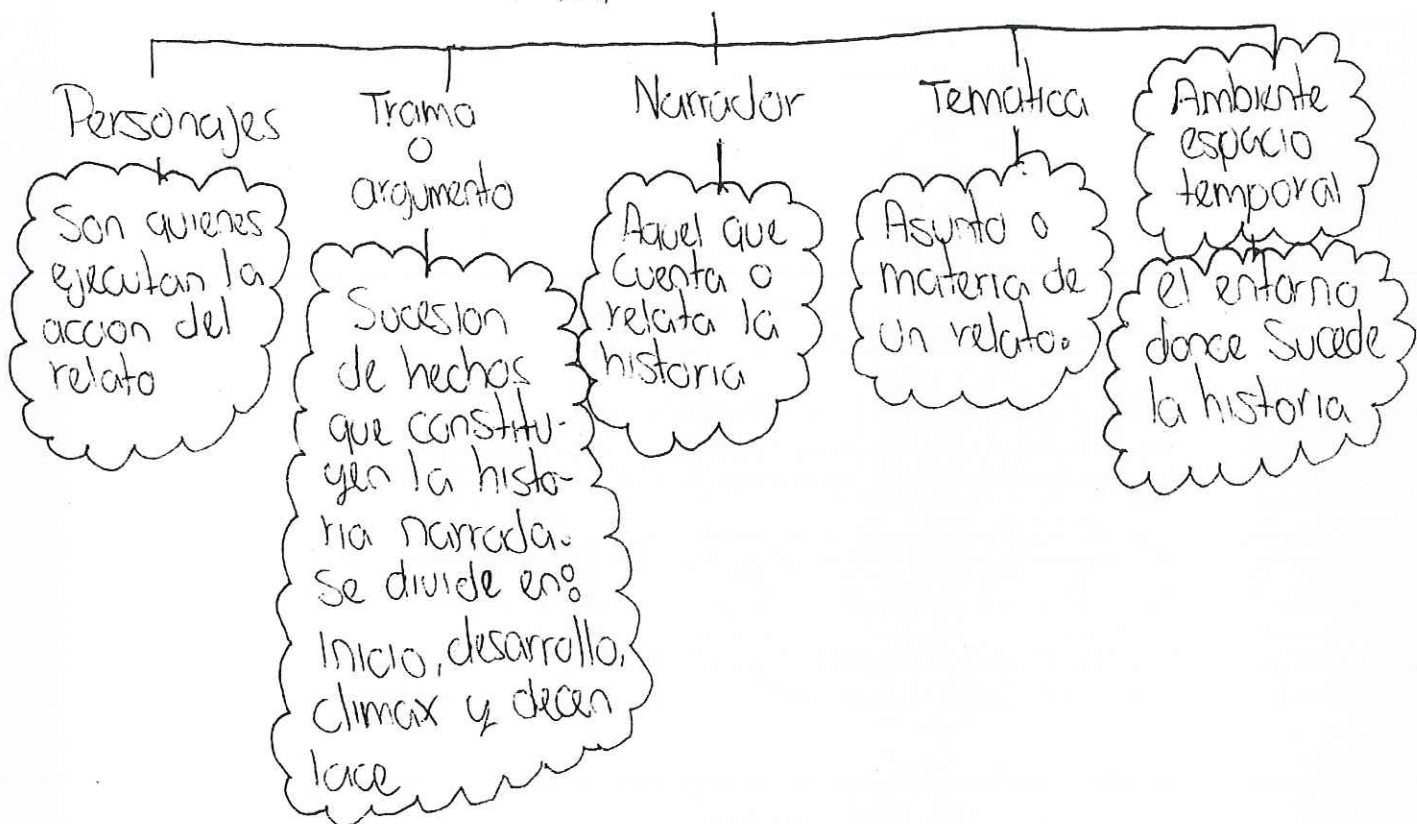 Personajes
Son quienes
ejecutan la
accion del
relato
Trama
o
argumento
Sucesion
de hechos
que constitu-
yen la histo-
ria narrada.
Se divide en:
Inicio, desarrollo,
climax y decen
lace
Narrador
Aquel que
cuenta o
relata la
historia
Tematica
Asunto o
materia de
un relato.
Ambiente
espacio
temporal
el entorno
donce Sucede
la historia